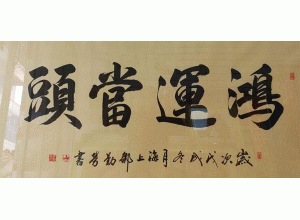 鴻運當頭
歲次戊戌冬月海上郝勤芳書